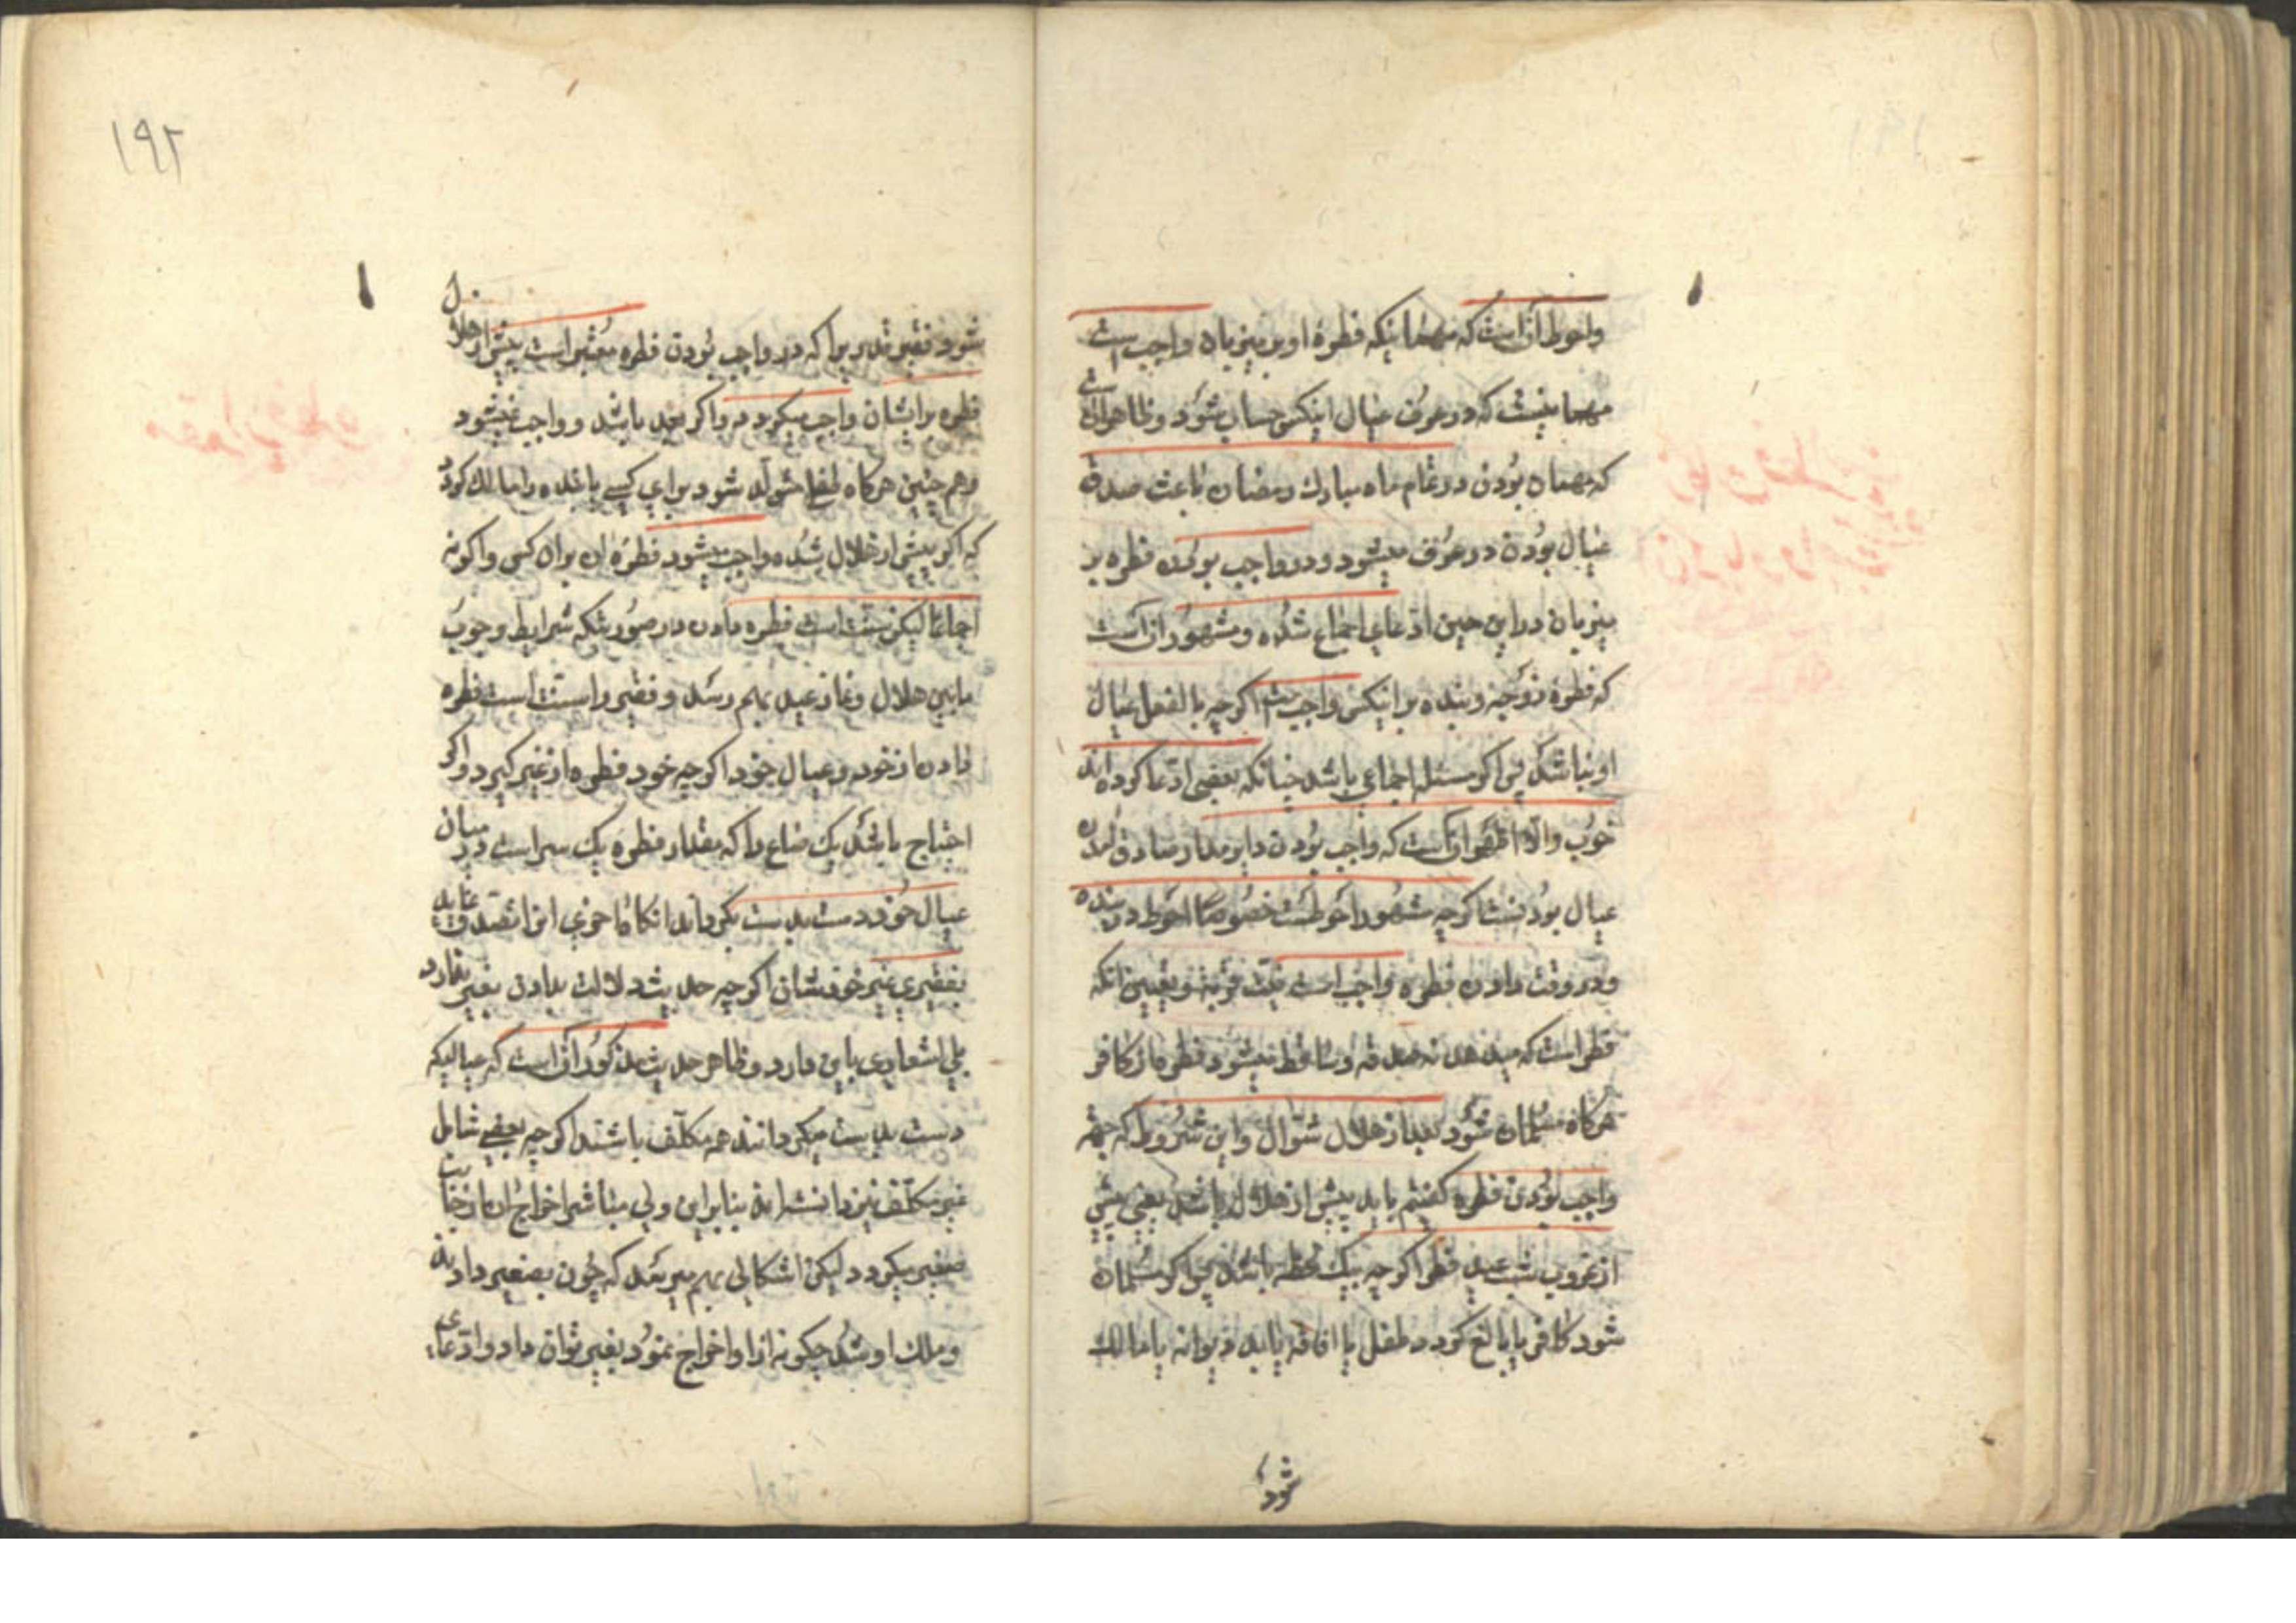 واحوط آنست که مهمانیکه فطرهٔ او بر میزبان واجب است
مهمانیست که در عرف عیال اینکس حساب شود و ظاهر آن است
که مهمان بودن در تمام ماه مبارک رمضان باعث صدق
عیال بودن در عرف میشود و در واجب بودن فطره بر
میزبان در این حین ادعای اجماع شده و مشهور آنست
که فطرهٔ زوجه و بنده بر اینکس واجبست اگر چه بالفعل عیال
او نباشد پس اگر مسئله اجماعی باشد چنانکه بعضی ادعا کرده اند
خوب والا اظهر آنست که واجب بودن دایر مدار صادق آمدن
عیال بودنست اگر چه مشهور احوطست خصوصا احوط در بنده
و در وقت دادن فطره واجب است نیت قربت و تعیین آنکه
فطر است که میدهد نه صدقه و ساقط میشود فطره از کافر
هرگاه مسلمان شود بعد از هلال شوال و این شروط که جهة
واجب بودن فطره گفتیم باید پیش از هلال باشد یعنی پیش
از غروب شب عید فطر اگر چه بیک لحظه باشد پس اگر مسلمان
شود کافر یا بالغ گردد طفل یا افاقه یابد دیوانه یا مالک
شود
۱۹۲
شود فقیر قدریرا که در واجب بودن فطره معتبر است پیش از هلال
فطره برایشان واجب میگردد و اگر بعد باشد واجب نمیشود
وهم چنین هرگاه طفل متولد شود برای کسی یا بنده را مالک گردد
که اگر پیش از هلال شده واجب میشود فطرهٔ آن بر آن کس و اگر نه
اجماعا لیکن سنت است فطره دادن در صورتیکه شرایط وجوب
مابین هلال و نماز عید بهم رسد و فقیر را سنت است فطره
دادن از خود و عیال خود اگر چه خود فطره از غیر گیرد و اگر
احتیاج باشد یک صاع را که مقدار فطره یک سر است در میان
عیال خود دست بدست بگرداند
بفقیری غیر خودشان اگر چه حدیث دلالت بدادن بغیر ندارد
بلی اشعاری باین دارد و ظاهر حدیث مذکور آنست که عیالیکه
دست بدست میگردانند همه مکلف باشند اگر چه بعضی شامل
غیر مکلف نیز دانسته اند بنابراین ولی مباشر اخراج آن از جانب
صغیر میگردد لیکن اشکالی بهم میرسد که چون بصغیر دادند
و ملک او شد چگونه از او اخراج نمود بغیر توان داد و ادعای
مقدار فطره